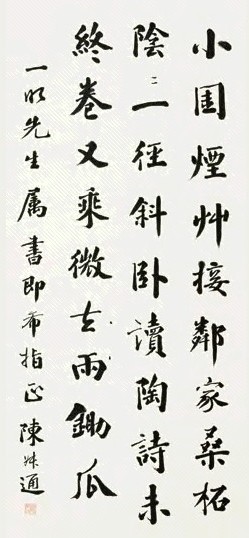 小園煙艸接鄰家桑柘
陰二一徑斜卧讀陶詩未
終卷又乘微去雨鋤瓜
一明先生属書即希指正陳叔通